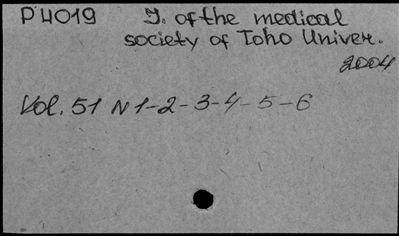 P 4019 J. of the medical
society of Toho Univer.
2004
Vol. 51 N 1-2-3-4-5-6